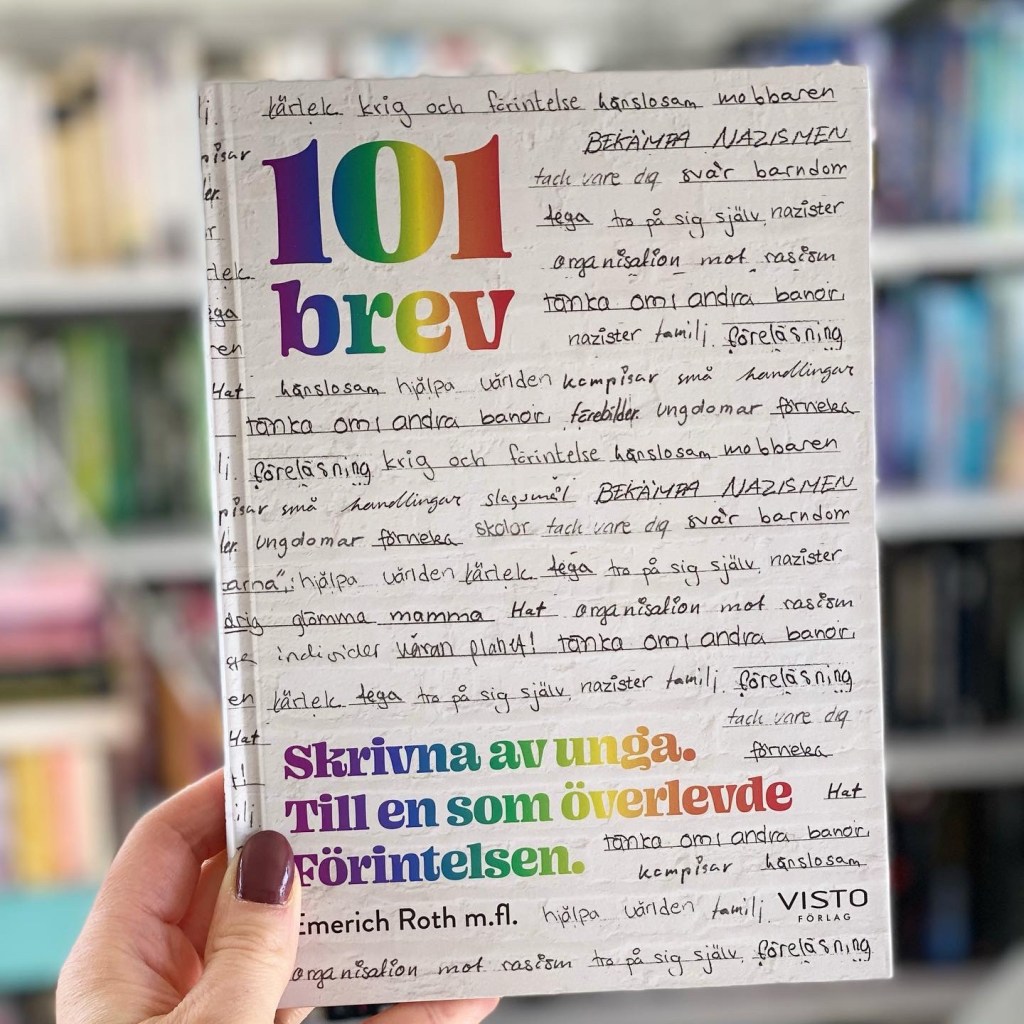 kärlek krig och förintelse hänslosam mobbaren
101
BEKÄMPA NAZISMEN
tack vare dig svår barndom
fega tro på sig själv nazister
organisation mot rasism
brev
tänka om i andra banor.
nazister familj föreläsning
Hat hänslosam hjälpa världen kompisar små handlingar
tänka om i andra banor. förebilder. ungdomar förneka
föreläsning krig och förintelse hänslosam mobbaren
pisar små handlingar slagsmål BEKÄMPA NAZISMEN
ler. ungdomar förneka skolor tack vare dig svår barndom
arna". hjälpa världen kärlek fega tro på sig själv nazister
drig glömma mamma Hat organisation mot rasism
individer våran planet! tänka om i andra banor.
en kärlek fega tro på sig själv nazister familj föreläsning
tack vare dig
Hat
Skrivna av unga.
förneka
Till en som överlevde
Hat
tänka om i andra banor.
Förintelsen.
kompisar hänslosam
Emerich Roth m.fl. hjälpa världen familj VISTO
FÖRLAG
organisation mot rasism tro på sig själv föreläsning